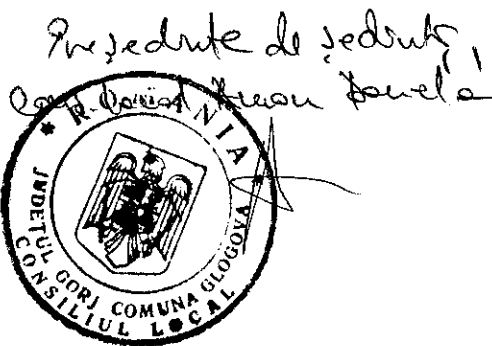 Președinte de ședință,
Daniela
* ROMÂNIA *
JUDEȚUL GORJ COMUNA GLOGOVA
CONSILIUL LOCAL